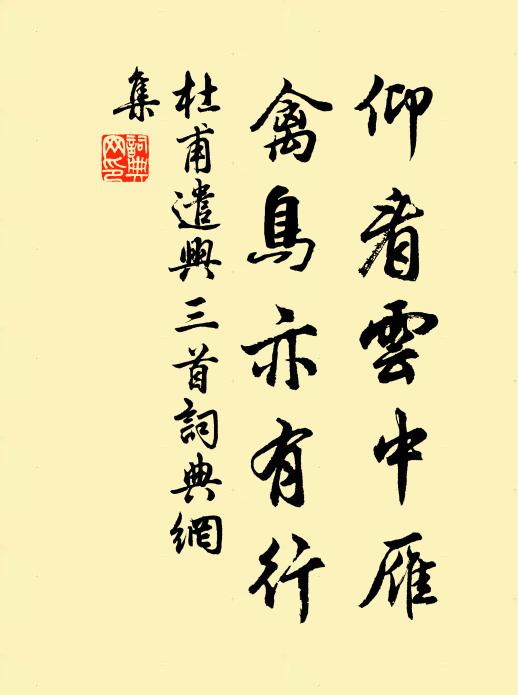 仰看雲中雁
禽鳥亦有行
杜甫遣興三首詞典網
集
詞典
网印